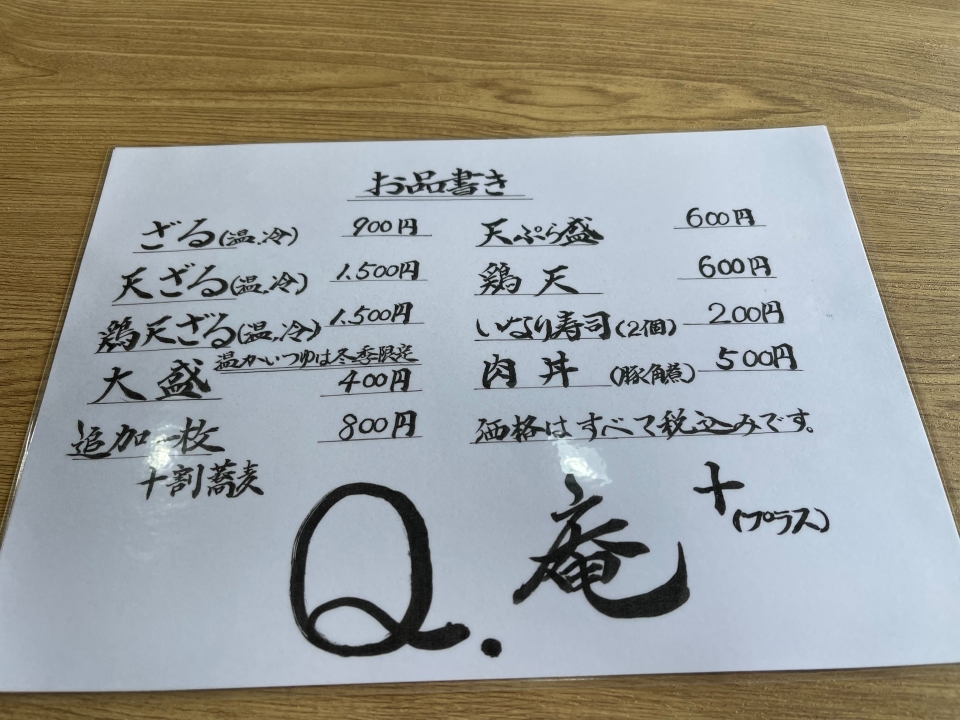 お品書き
ざる(温,冷) 900円
天ざる(温,冷) 1.500円
鶏天ざる(温,冷) 1.500円
温かいつゆは冬季限定
大盛 400円
追加一枚 800円
十割蕎麦
天ぷら盛 600円
鶏天 600円
いなり寿司(2個) 200円
肉丼 (豚く角煮) 500円
価格はすべて税込みです。
Q.庵
+
(プラス)